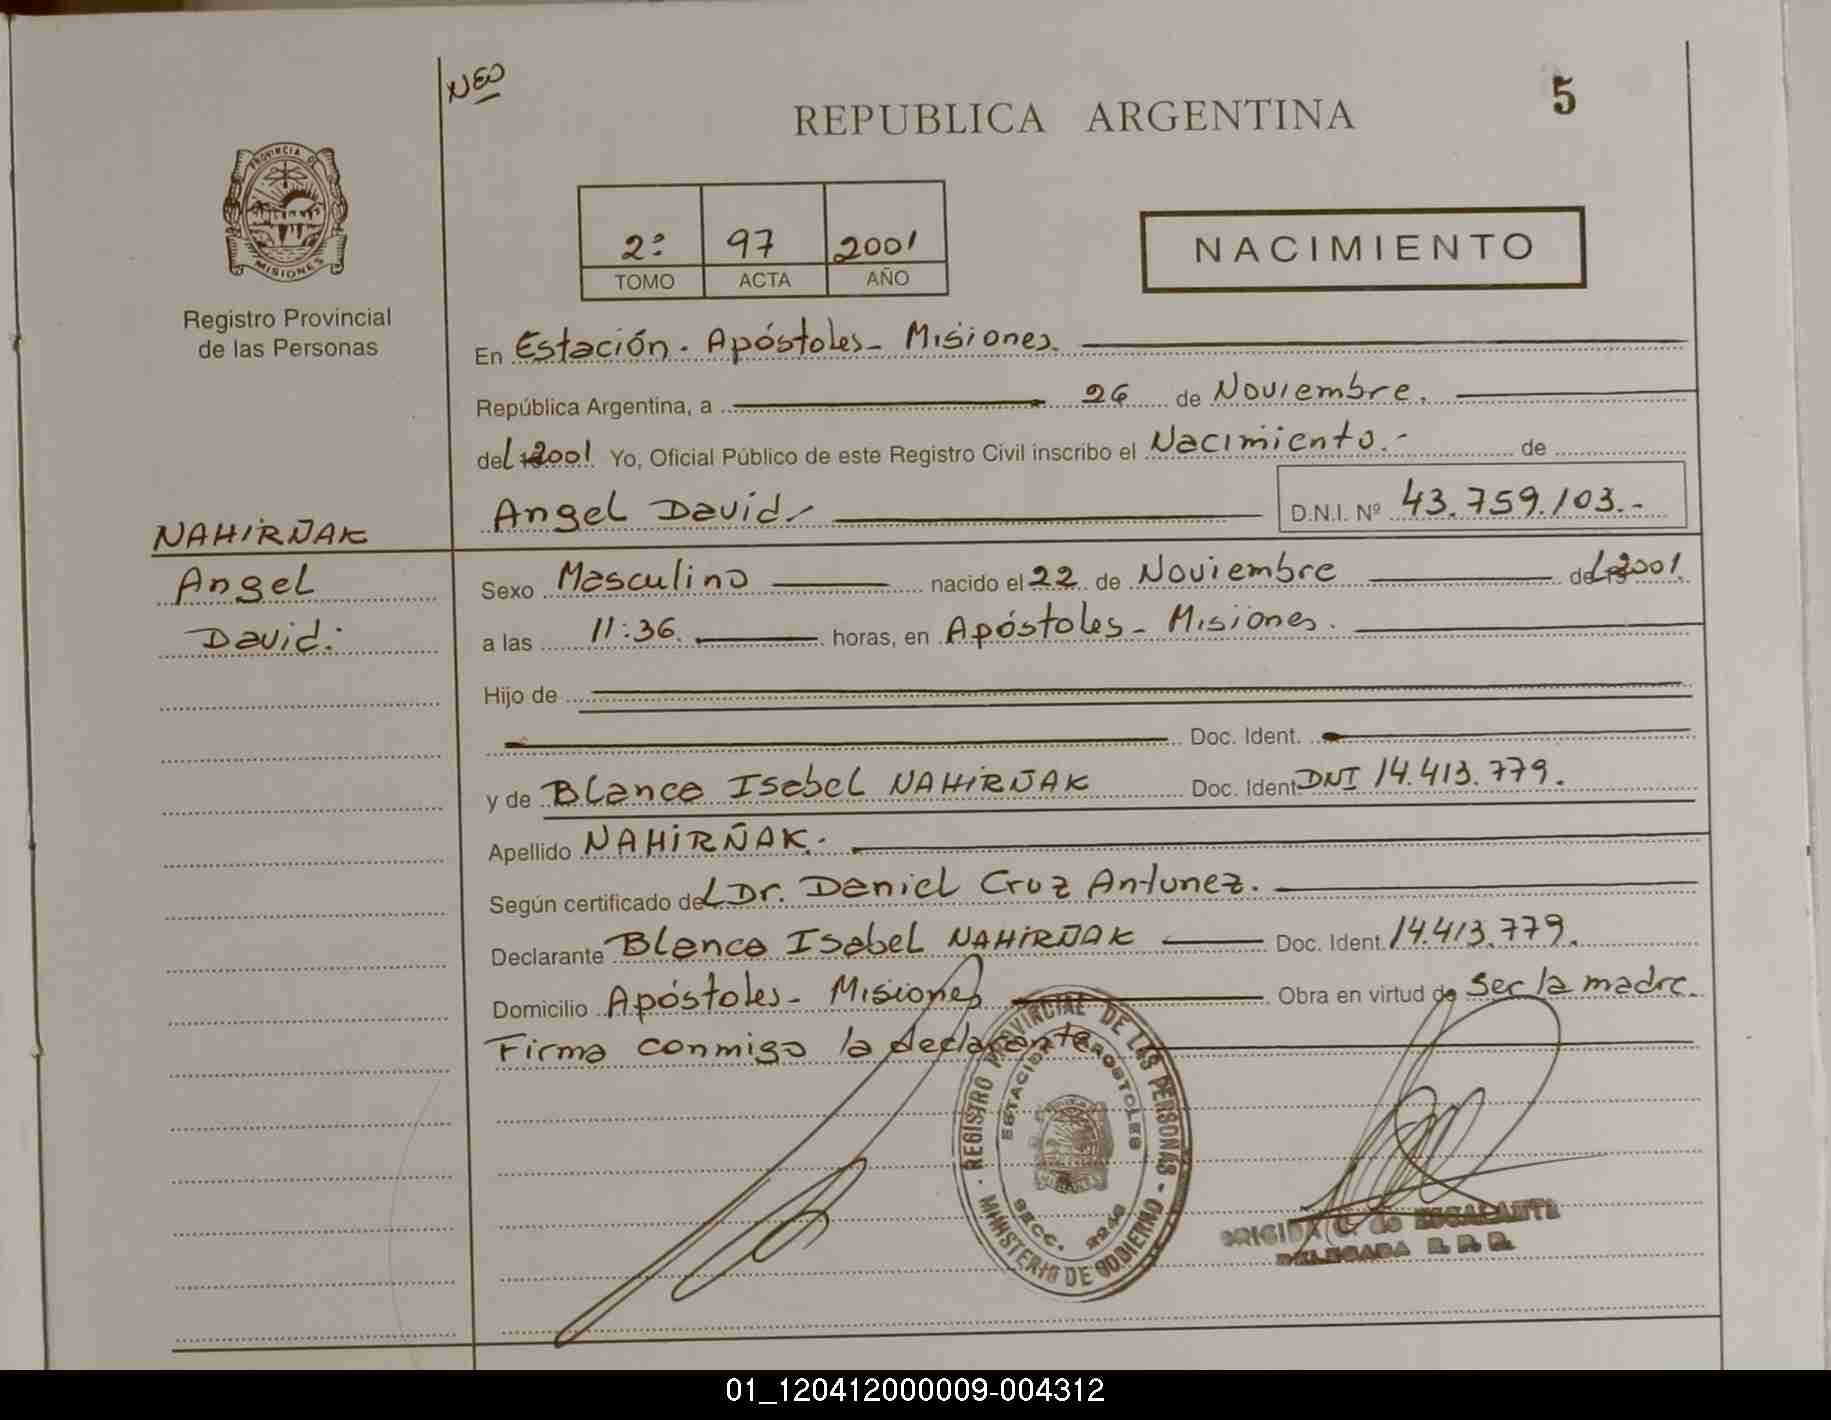 NEO
REPUBLICA ARGENTINA
5
PROVINCIA DE
MISIONES
Registro Provincial
de las Personas
2º 97 2001
TOMO ACTA AÑO
NACIMIENTO
En Estación. Apóstoles- Misiones.
República Argentina, a 26 de Noviembre.
del 2001 Yo, Oficial Público de este Registro Civil inscribo el Nacimiento.- de
Angel David D.N.I. Nº 43.759.103.-
NAHIRÑAK
Angel
David.
Sexo Masculino nacido el 22 de Noviembre del 2001.
a las 11:36. horas, en Apóstoles- Misiones.
Hijo de
Doc. Ident.
y de Blanca Isabel NAHIRÑAK Doc. Ident DNI 14.413.779.
Apellido NAHIRÑAK.
Según certificado del Dr. Daniel Cruz Antunez.
Declarante Blanca Isabel NAHIRÑAK Doc. Ident. 14.413.779.
Domicilio Apóstoles- Misiones Obra en virtud de ser la madre.
Firma conmigo la declarante
REGISTRO PROVINCIAL DE LAS PERSONAS - MINISTERIO DE GOBIERNO
ESTACION APOSTOLES
SECC.
BRIGIDA C. de ESCALANTE
DELEGADA R. P. P.
01_120412000009-004312